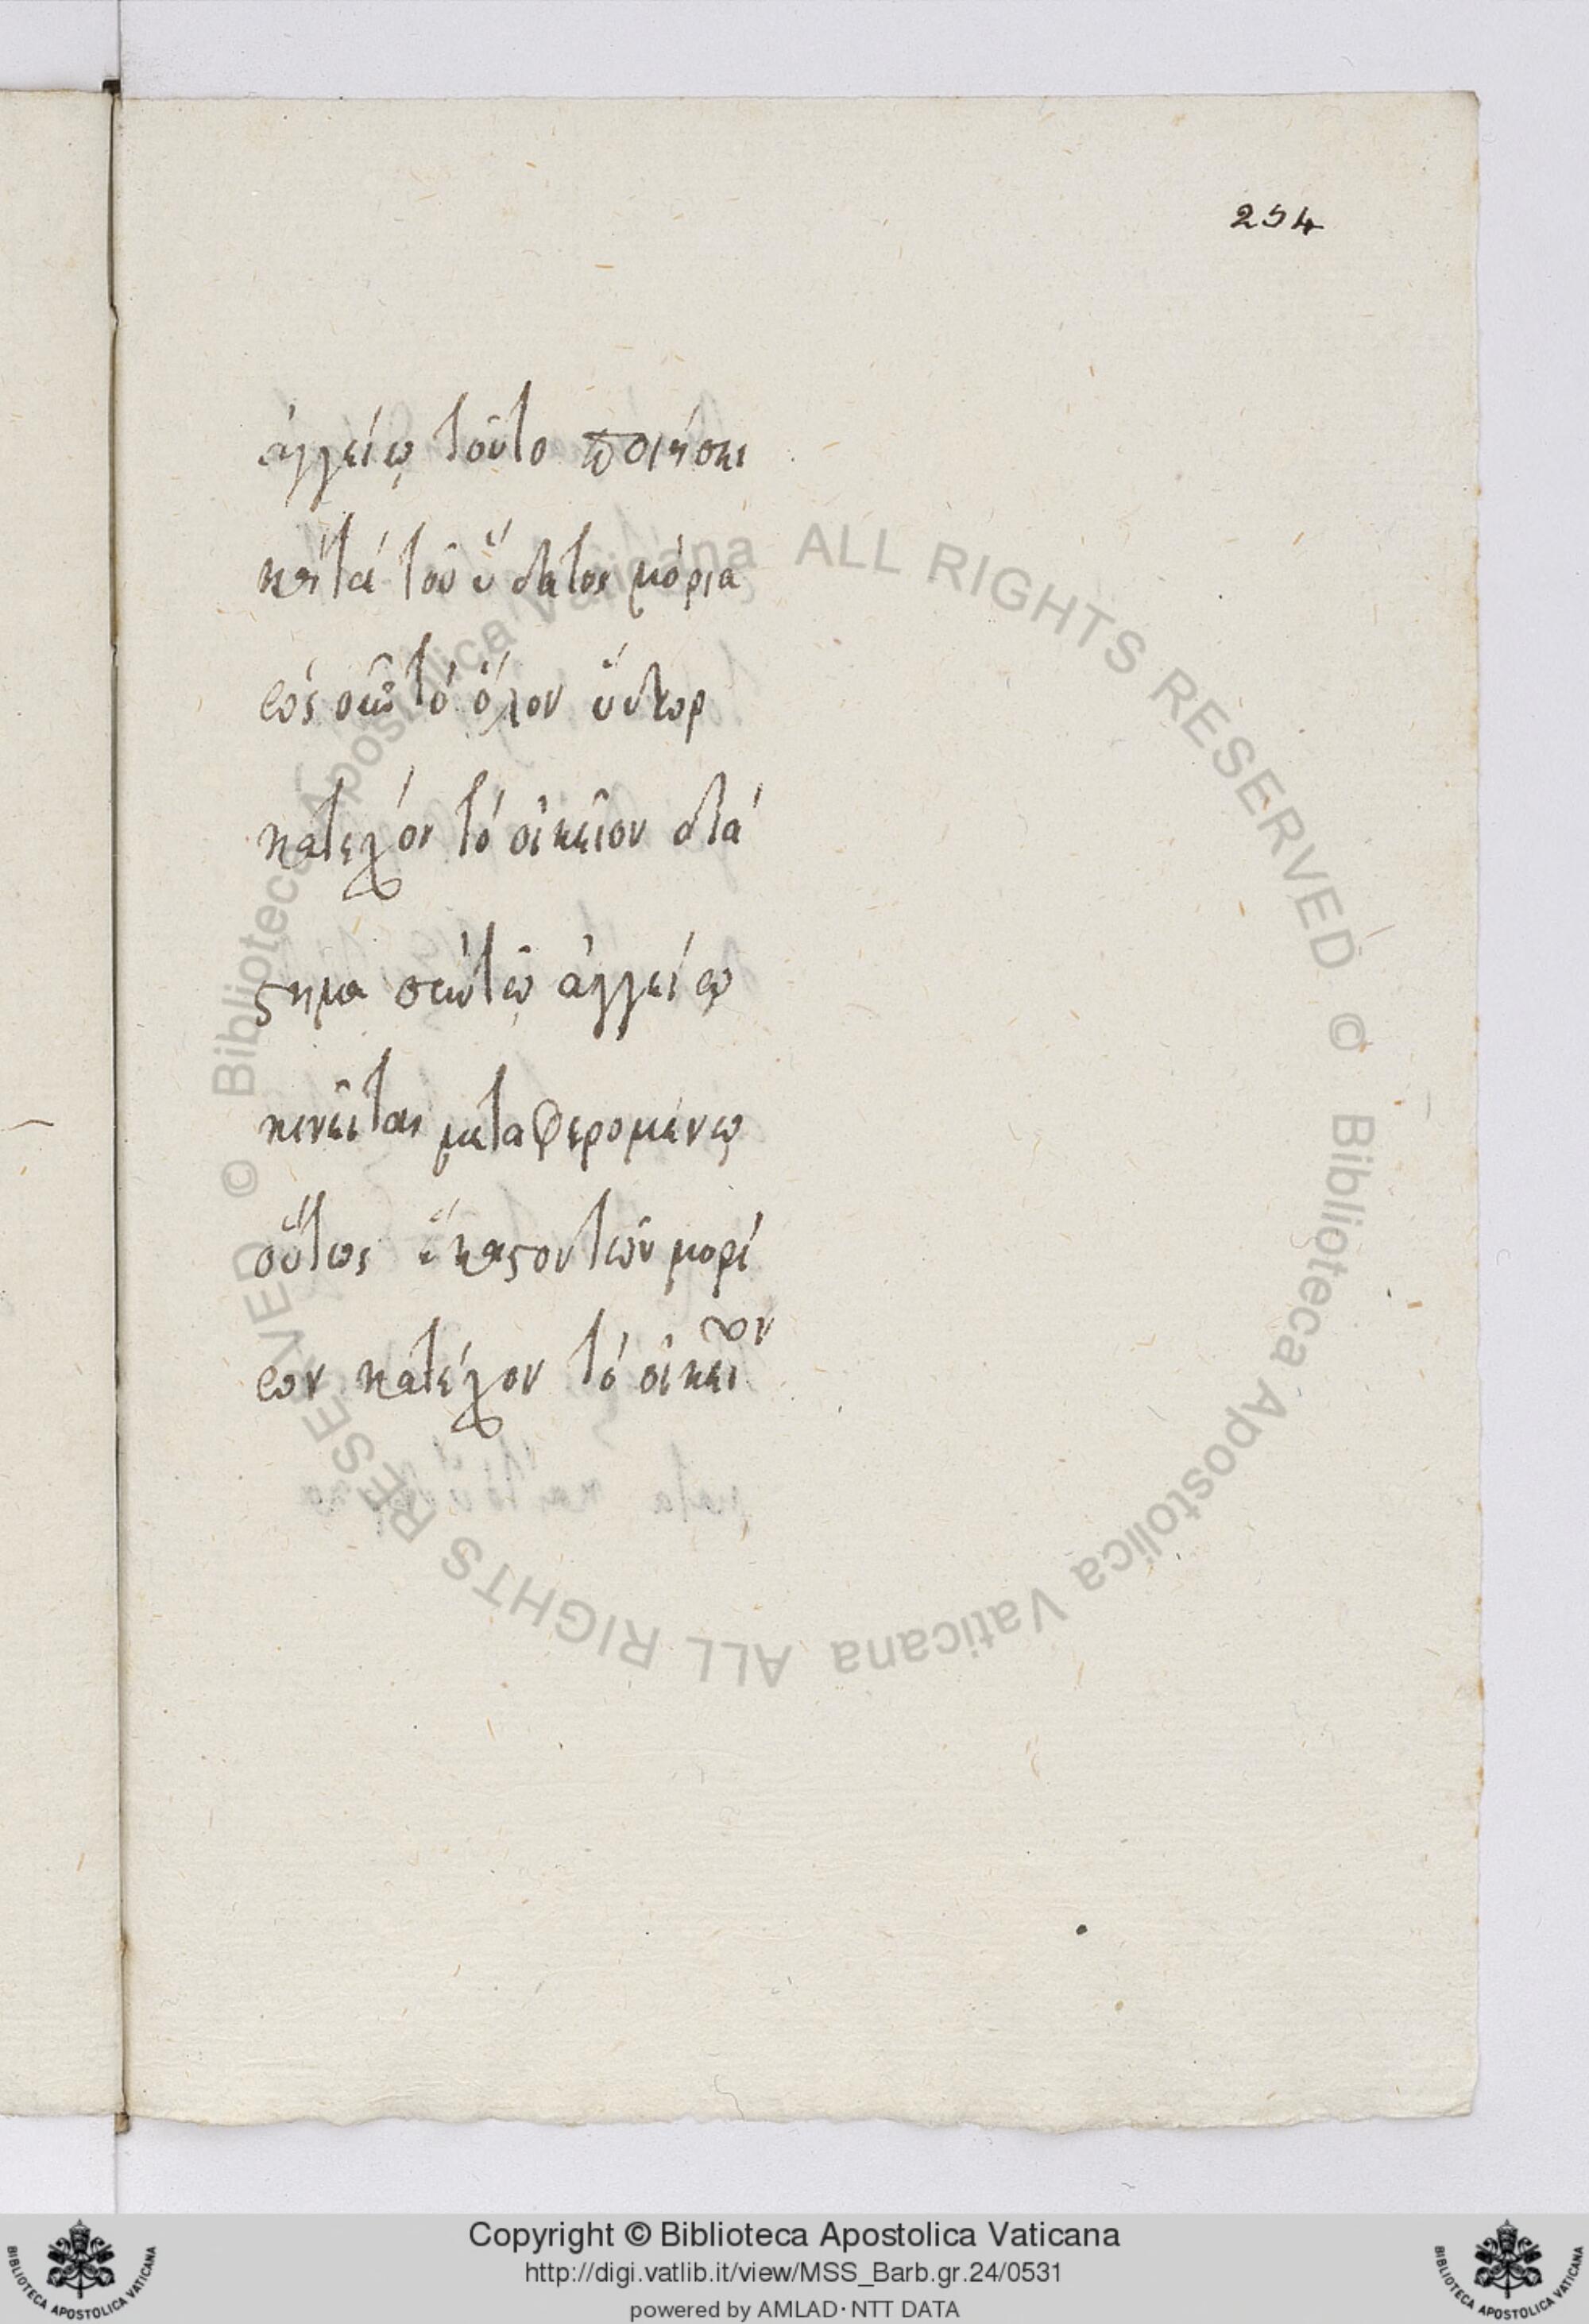 254
ἀγγείῳ τοῦτο ποιήσει
καὶ τὰ τοῦ ὕδατος μόρια
ὡς οὖν τὸ ὅλον ὕδωρ
κατεχόν τὸ οἰκεῖον διά
στημα σὺν τῷ ἀγγείῳ
κινεῖται μεταφερομένῳ
οὕτως ἕκαστον τῶν μορί
ων κατέχον τὸ οἰκεῖον
Copyright © Biblioteca Apostolica Vaticana
http://digi.vatlib.it/view/MSS_Barb.gr.24/0531
powered by AMLAD·NTT DATA
BIBLIOTECA APOSTOLICA VATICANA
BIBLIOTECA APOSTOLICA VATICANA
© Biblioteca Apostolica Vaticana ALL RIGHTS RESERVED © Biblioteca Apostolica Vaticana ALL RIGHTS RESERVED